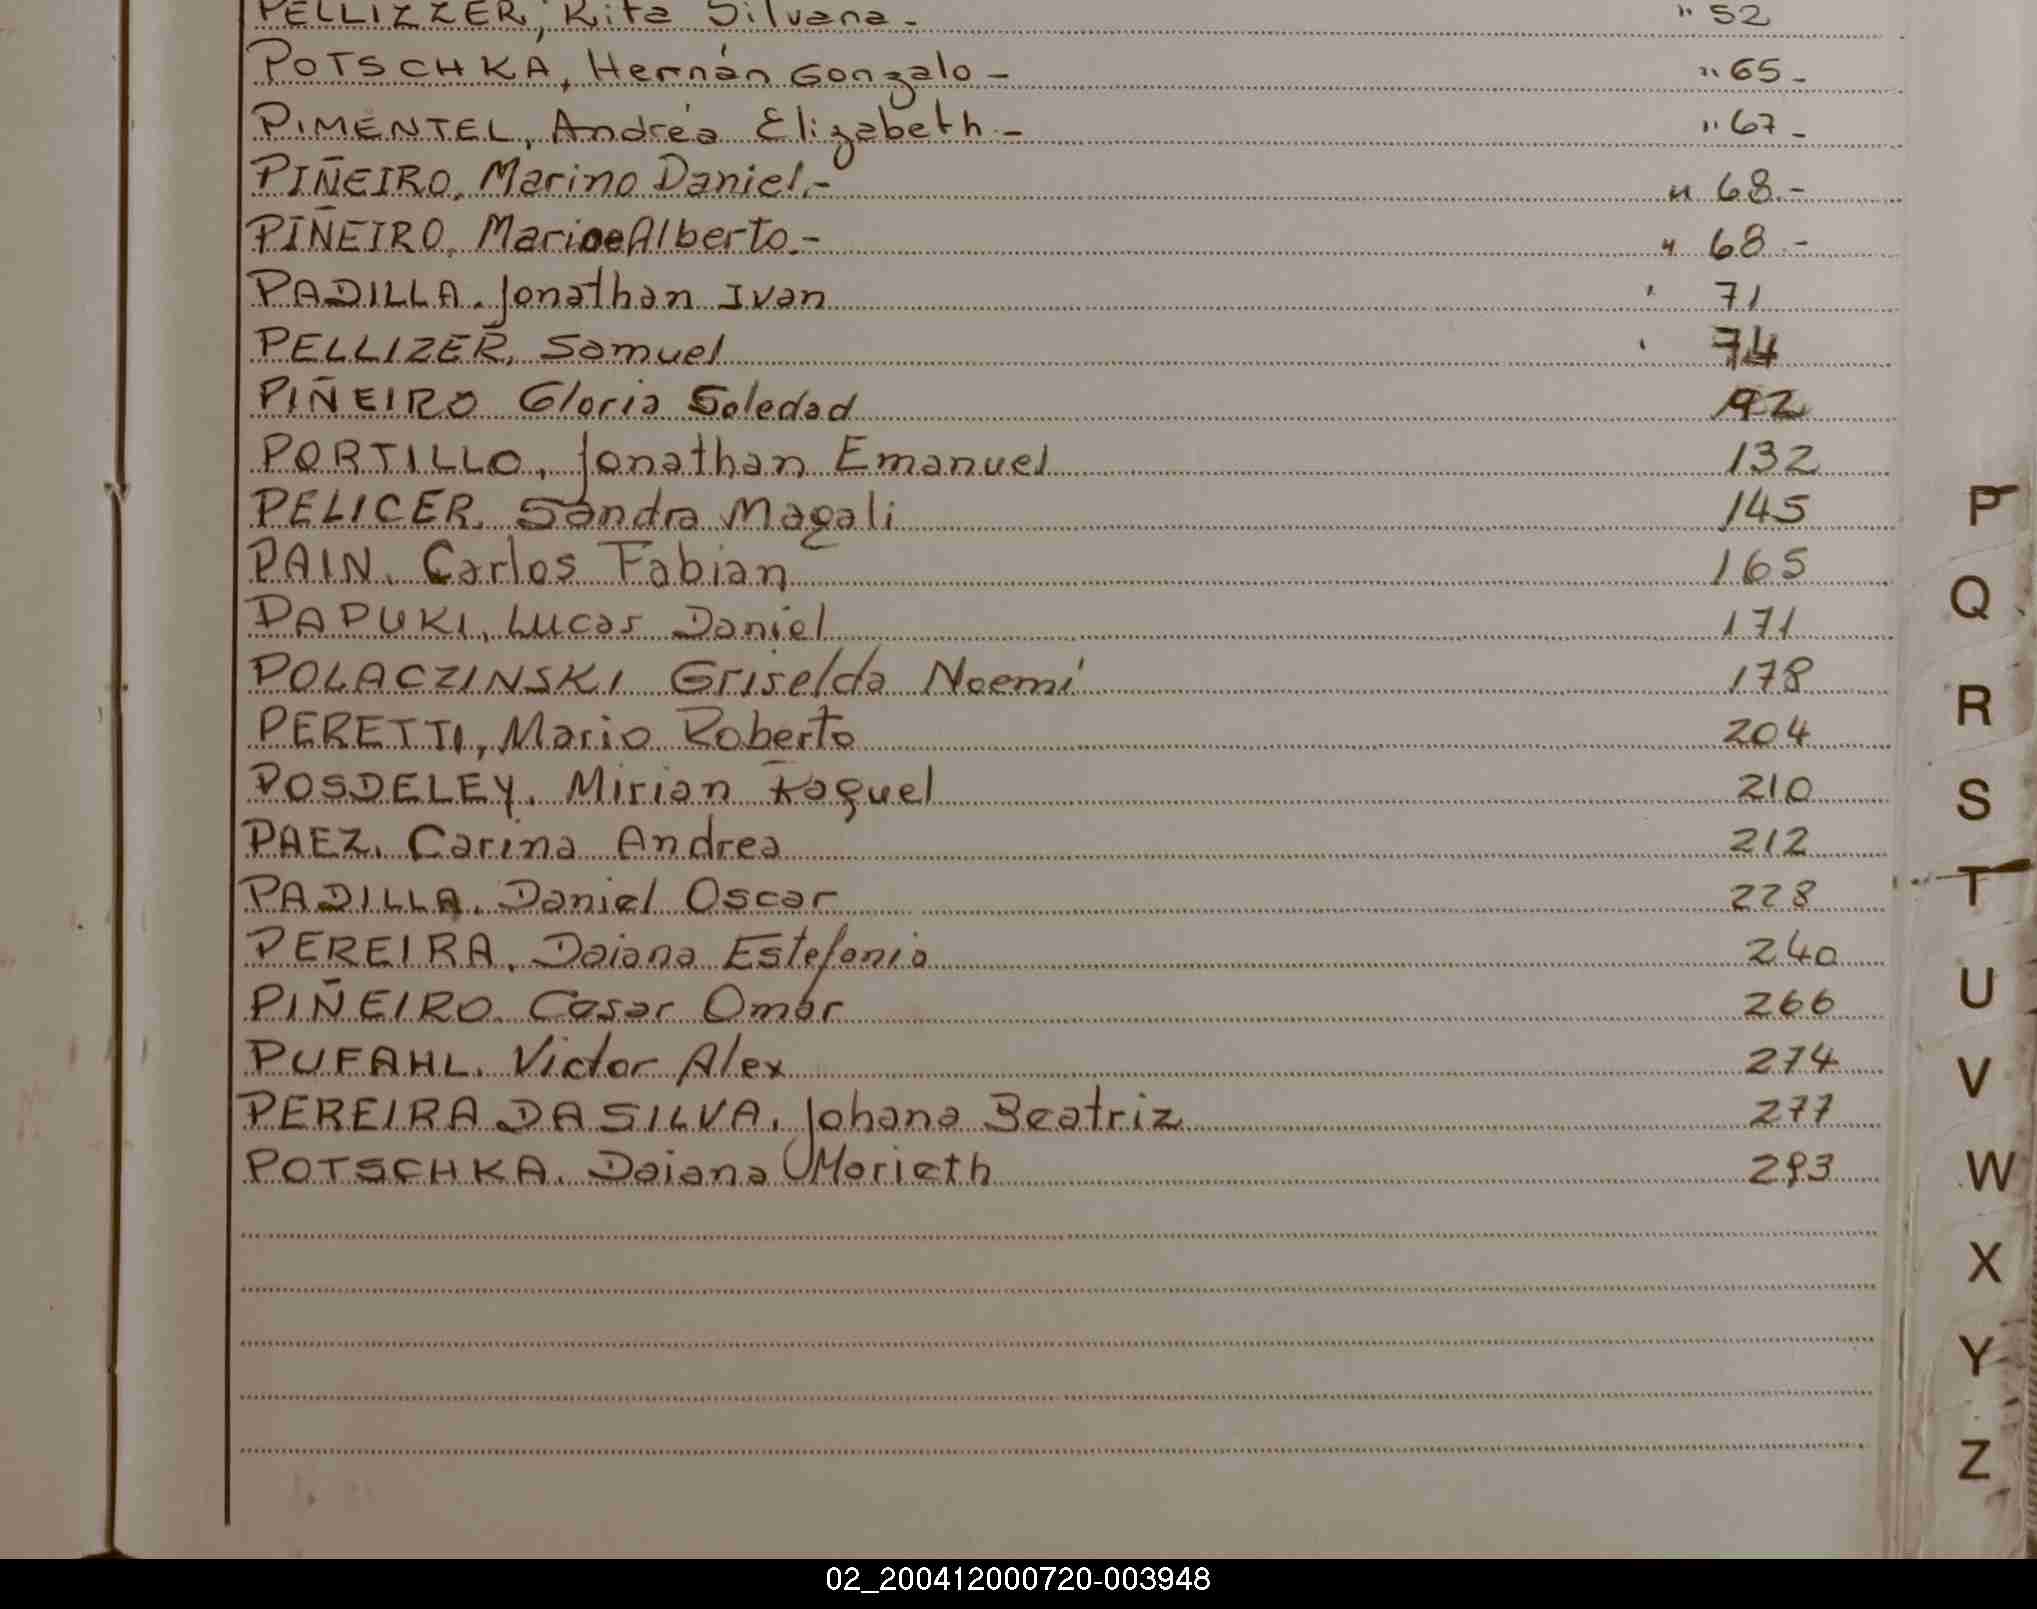 PELLIZZER, Rita Silvana - " 52
POTSCHKA, Hernán Gonzalo - " 65 -
PIMENTEL, Andréa Elizabeth - " 67 -
PIÑEIRO, Marino Daniel - " 68 -
PIÑEIRO, Marioe Alberto - " 68 -
PADILLA, Jonathan Ivan ' 71
PELLIZER, Samuel ' 74
PIÑEIRO Gloria Soledad 92
PORTILLO, Jonathan Emanuel 132
PELICER, Sandra Magali 145
PAIN, Carlos Fabian 165
PAPUKI, Lucas Daniel 171
POLACZINSKI Griselda Noemí 178
PERETTI, Mario Roberto 204
POSDELEY, Mirian Raquel 210
PAEZ, Carina Andrea 212
PADILLA, Daniel Oscar 228
PEREIRA, Daiana Estefania 240
PIÑEIRO Cesar Omar 266
PUFAHL, Victor Alex 274
PEREIRA DA SILVA, Johana Beatriz 277
POTSCHKA, Daiana Marieth 293
P
Q
R
S
T
U
V
W
X
Y
Z
02_200412000720-003948